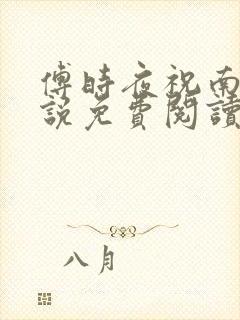 傅時夜祝南
說免費閱讀
八月